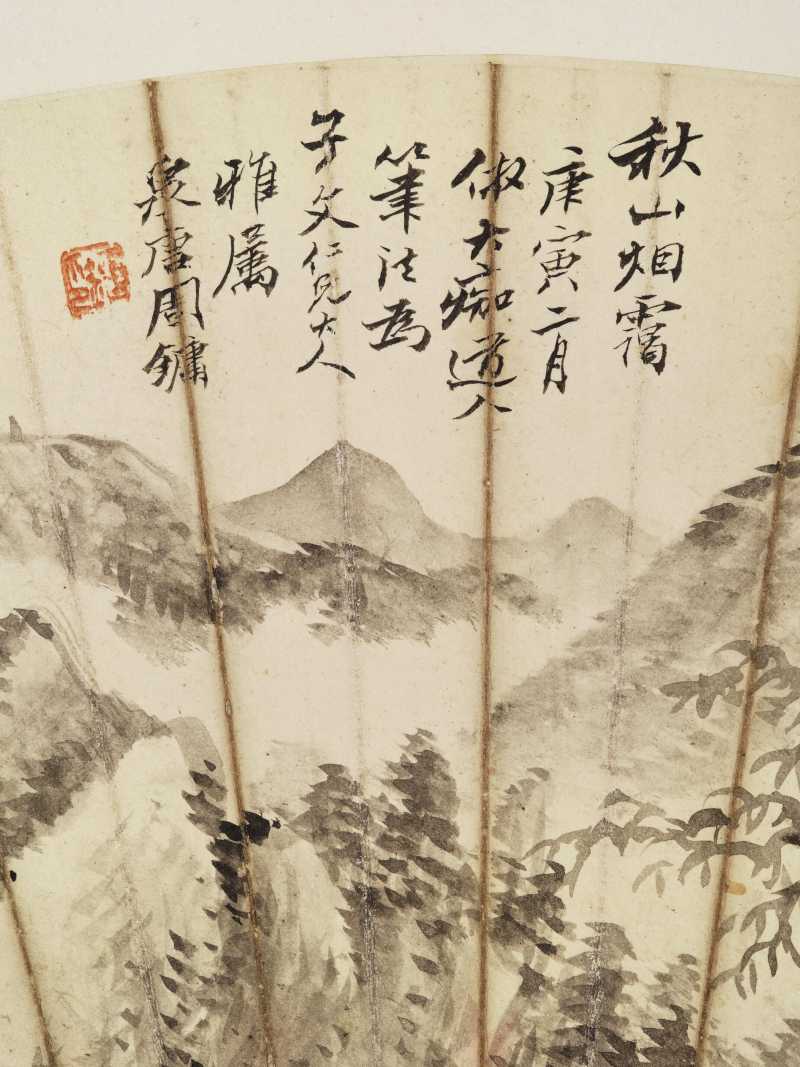 秋山烟靄
庚寅二月
倣大癡道人
筆法為
子文仁兄大人
雅属
泉唐周鏞